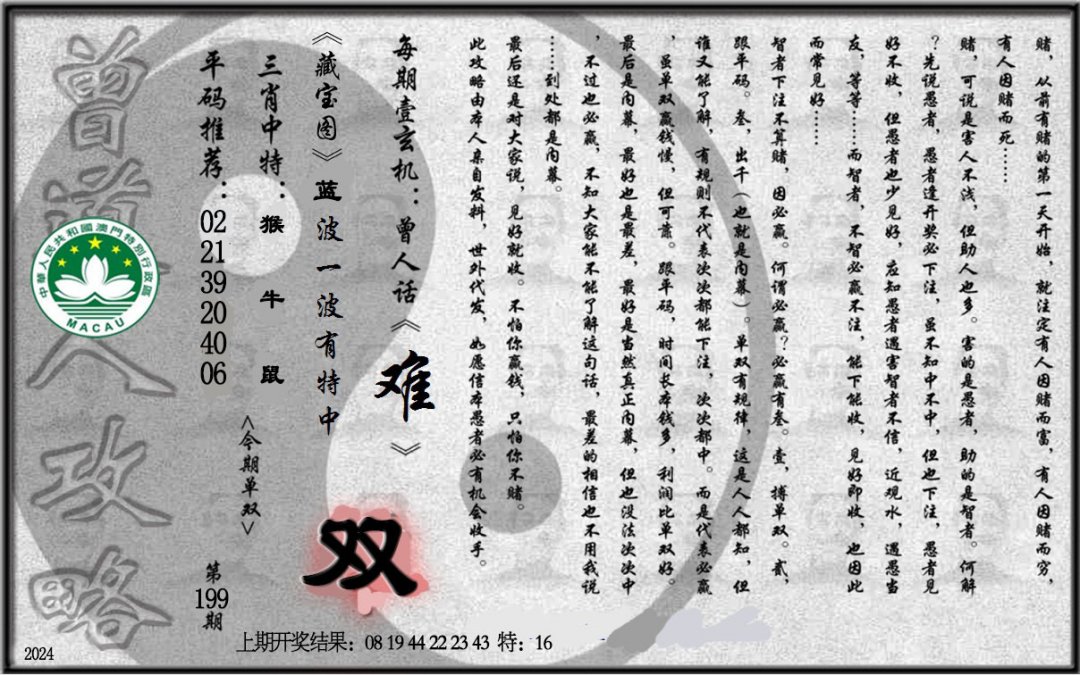 赌，从前有赌的第一天开始，就注定有人因赌而富，有人因赌而穷，
有人因赌而死……
赌，可说是害人不浅，但助人也多。害的是愚者，助的是智者。何解
？先说愚者，愚者逢开奖必下注，虽不知中不中，但也下注，愚者见
好不收，但愚者也少见好，应知愚者遇害智者不信，近观水，遇愚当
友，等等……而智者，不智必赢不注，能下能收，见好即收，也因此
而常见好……
智者下注不算赌，因必赢。何谓必赢？必赢有叁。壹，搏单双。贰，
跟平码。叁，出千（也就是内幕）。单双有规律，这是人人都知，但
谁又能了解，有规则不代表次次都能下注，次次都中。而是代表必赢
，虽单双赢钱慢，但可靠。跟平码，时间长本钱多，利润比单双好。
最后是内幕，最好也是最差，最好是当然真正内幕，但也没法次次中
，不过也必赢，不知大家能不能了解这句话，最差的相信也不用我说
……到处都是内幕。
最后还是对大家说，见好就收。不怕你赢钱，只怕你不赌。
此攻略由本人亲自发料，世外代发，如愿信本愚者必有机会收手。
每期壹玄机：曾人话《难》
《藏宝图》蓝波一波有特中
三肖中特：猴 牛 鼠
平码推荐：02 21 39 20 40 06
<今期单双>
双
第199期
曾道人攻略
中華人民共和國澳門特別行政區
MACAU
上期开奖结果：08 19 44 22 23 43 特：16
2024